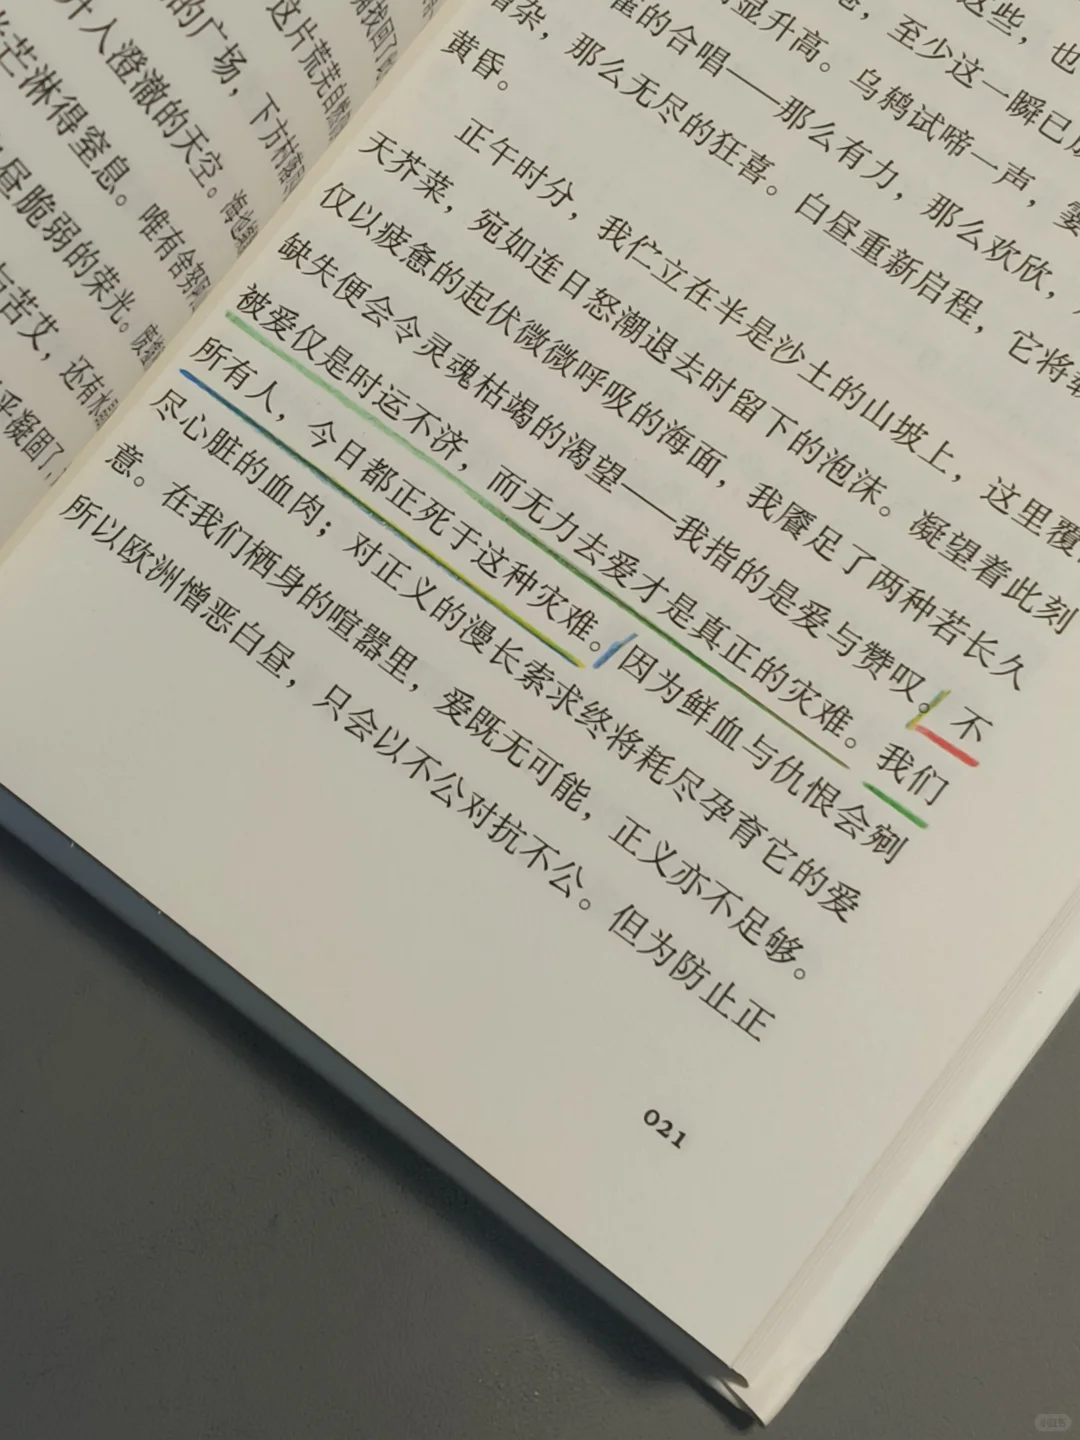 的广场，下方村落
升人澄澈的天空。海
光芒淋得窒息。唯有
昼脆弱的荣光。
与苦艾，还有水
乎凝固了，
这片荒芜
这些，也
，至少这一瞬已
显升高。乌鸫试啼一声，霎
雀的合唱——那么有力，那么欢欣，
杂，那么无尽的狂喜。白昼重新启程，它将
黄昏。
正午时分，我伫立在半是沙土的山坡上，这里覆
天芥菜，宛如连日怒潮退去时留下的泡沫。凝望着此刻
仅以疲惫的起伏微微呼吸的海面，我餍足了两种若长久
缺失便会令灵魂枯竭的渴望——我指的是爱与赞叹。不
被爱仅是时运不济，而无力去爱才是真正的灾难。我们
所有人，今日都正死于这种灾难。因为鲜血与仇恨会剜
尽心脏的血肉；对正义的漫长索求终将耗尽孕育它的爱
意。在我们栖身的喧嚣里，爱既无可能，正义亦不足够。
所以欧洲憎恶白昼，只会以不公对抗不公。但为防止正
021
小红书